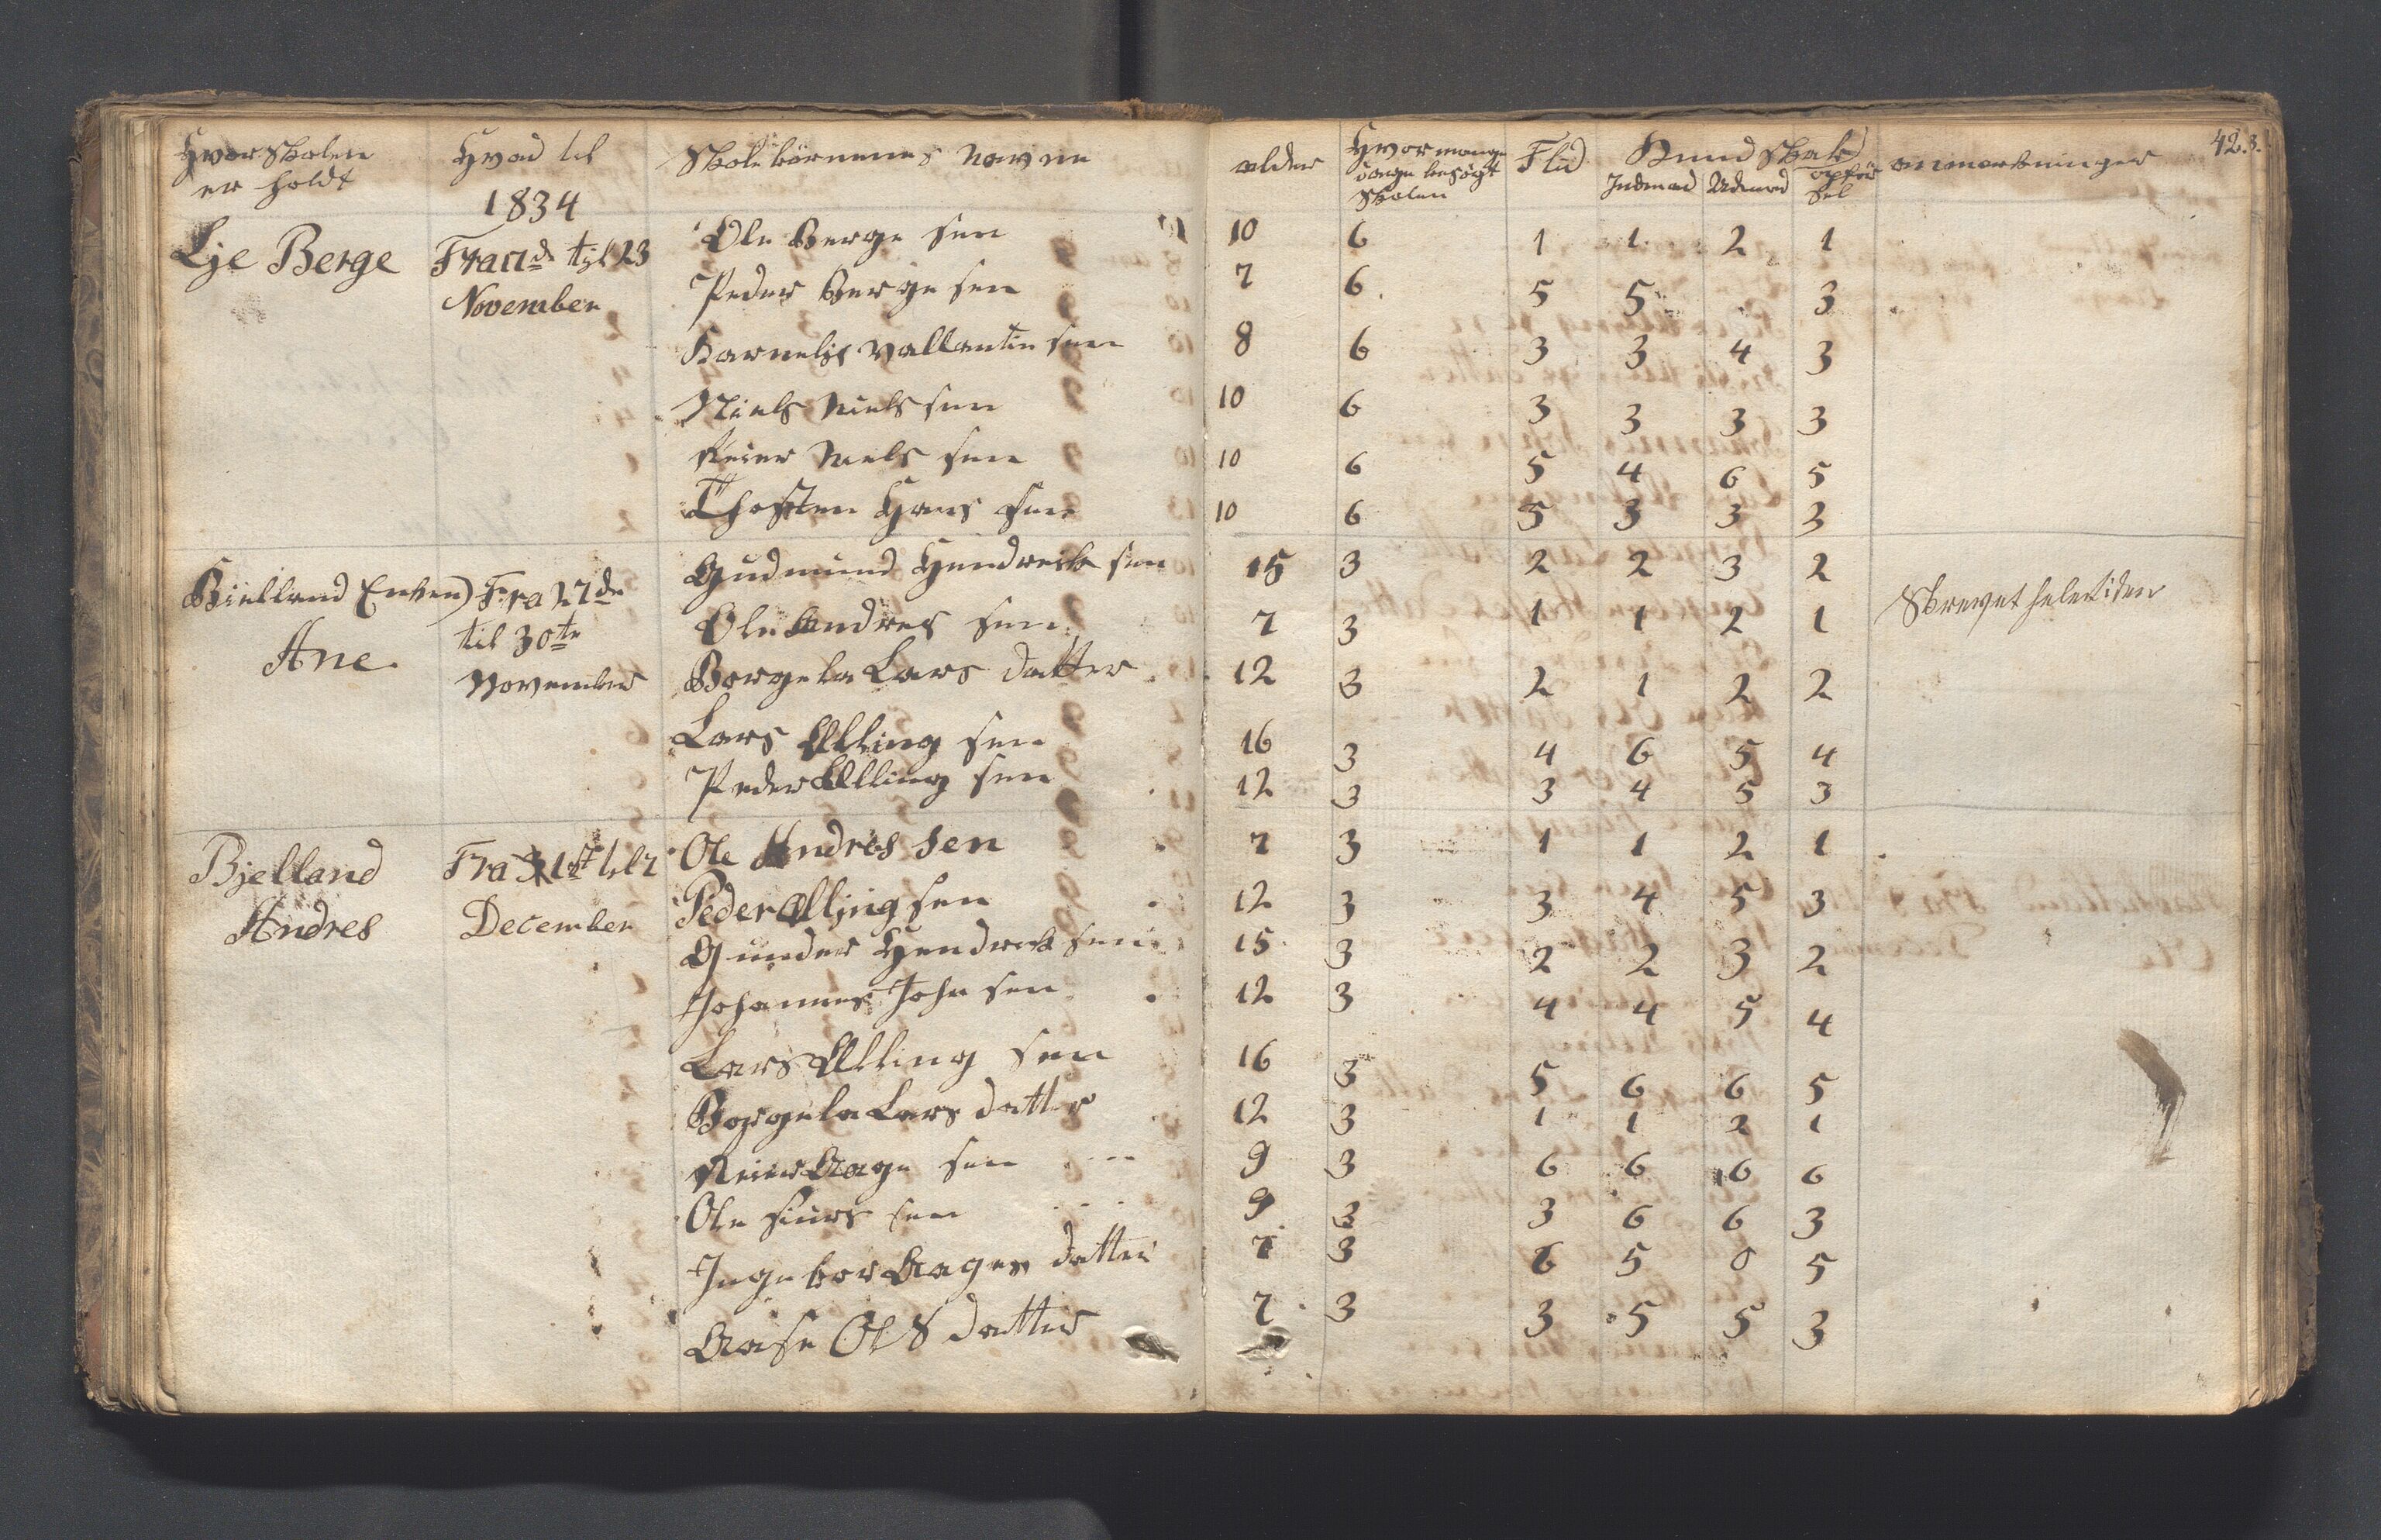 42.3.
Hvor Skolen er holdt Hvad tid 1834 Skolebörnenes Navne alder Hvor mange dage besögt Skolen Flid Kundskab Indenad Udenad opförsel anmærkninger
Lje Berge Fra 17de til 23 November Ole Berge sen 10 6 1 1 2 1
Peder Berge sen 7 6 5 5 3
Karnelis Vallantin sen 8 6 3 3 4 3
Niels Niels sen 10 6 3 3 3 3
Reier Niels sen 10 6 5 4 6 5
Thosten Hans sen 10 6 5 3 3 3
Bielland Enken Ane Fra 27de til 30te November Gudmund Hendrick sen 15 3 2 2 3 2 Skrevet hele tiden
Ole Andres sen 7 3 1 1 2 1
Borgela Lars datter 12 3 2 1 2 2
Lars Elling sen 16 3 4 6 5 4
Peder Elling sen 12 3 3 4 5 3
Bjelland Andres Fra 1st til December Ole Andres sen 7 3 1 1 2 1
Peder Elling sen 12 3 3 4 5 3
Gunder Hendrick sen 15 3 2 2 3 2
Johannes John sen 12 3 4 4 5 4
Lars Elling sen 16 3 5 6 6 5
Borgela Lars datter 12 3 1 1 2 1
Reier Aage sen 9 3 6 6 6 6
Ole Siurs sen 9 3 3 6 6 3
Ingebor Aages datter 7 3 6 5 0 5
Aase Ols datter 7 3 3 5 5 3